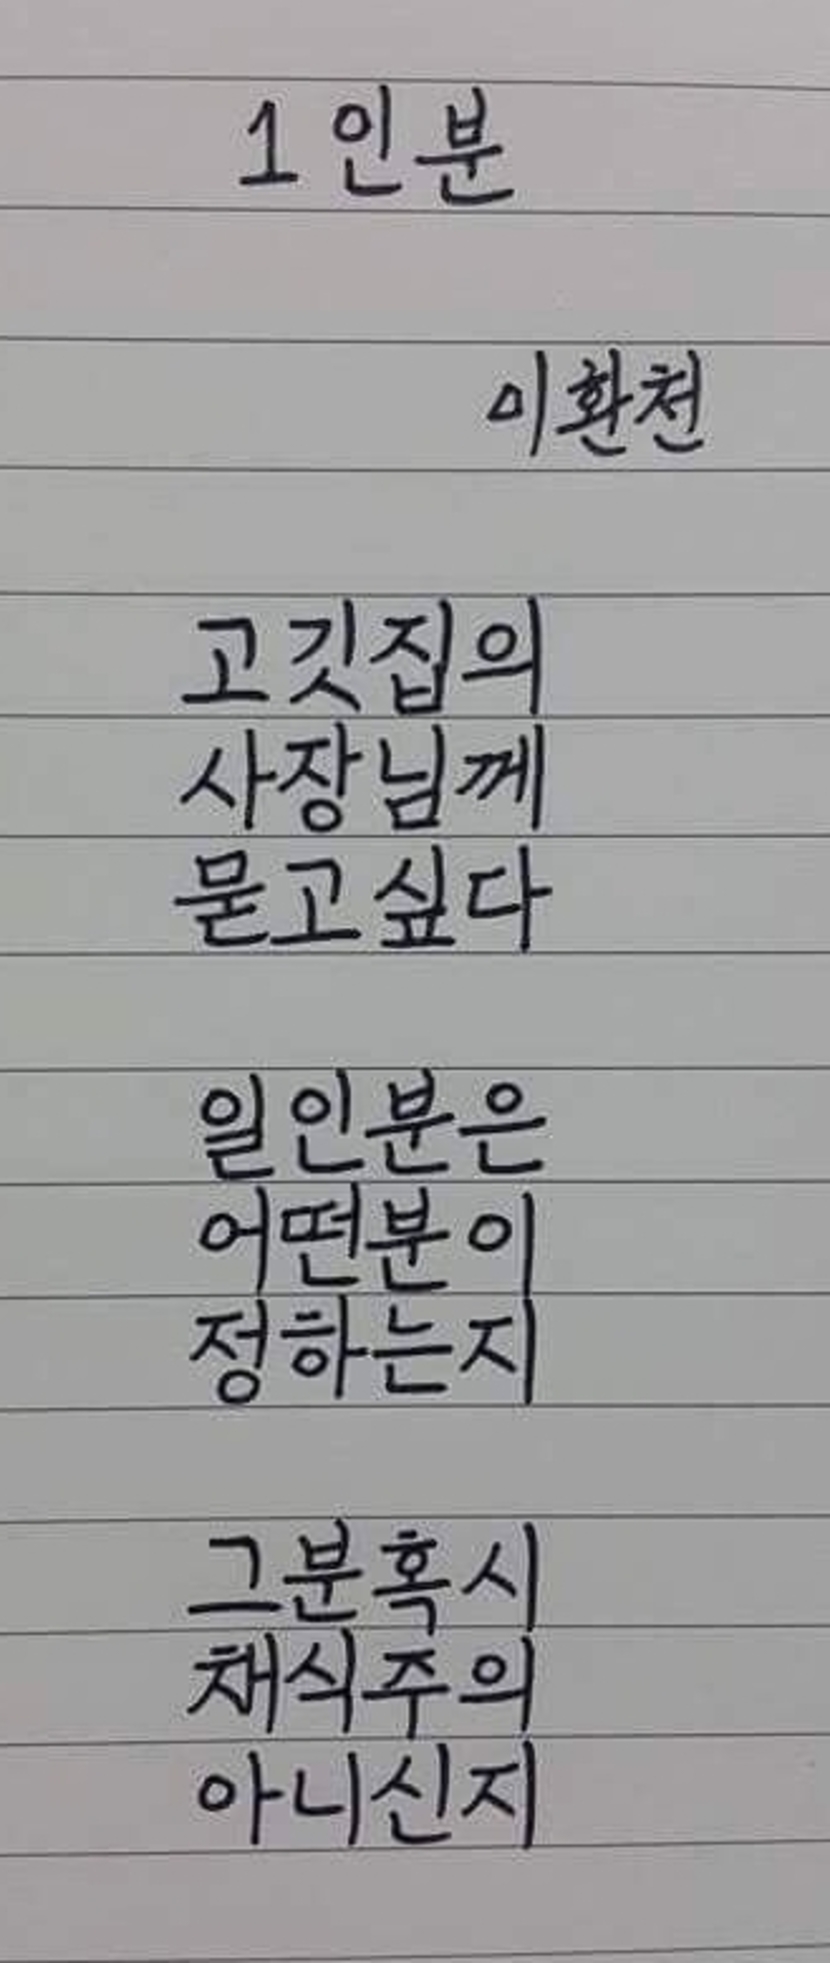 1인분
이환천
고깃집의
사장님께
묻고싶다
일인분은
어떤분이
정하는지
그분혹시
채식주의
아니신지